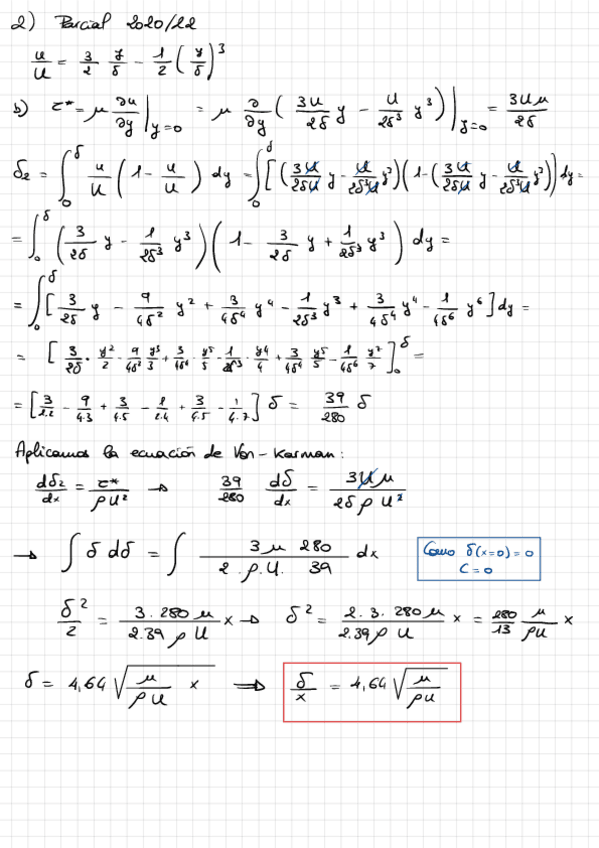 2) Parcial 2020/22
u/U = 3/2 y/δ - 1/2 (y/δ)^3
b) τ* = μ ∂u/∂y |_{y=0} = μ ∂/∂y ( 3U/2δ y - U/2δ^3 y^3 ) |_{y=0} = 3Uμ/2δ
δ2 = ∫_0^δ u/U ( 1 - u/U ) dy = ∫_0^δ [ ( 3U/2δU y - U/2δ^3U y^3 ) ( 1 - ( 3U/2δU y - U/2δ^3U y^3 ) ] dy =
= ∫_0^δ ( 3/2δ y - 1/2δ^3 y^3 ) ( 1 - 3/2δ y + 1/2δ^3 y^3 ) dy =
= ∫_0^δ [ 3/2δ y - 9/4δ^2 y^2 + 3/4δ^4 y^4 - 1/2δ^3 y^3 + 3/4δ^4 y^4 - 1/4δ^6 y^6 ] dy =
= [ 3/2δ · y^2/2 - 9/4δ^2 y^3/3 + 3/4δ^4 · y^5/5 - 1/2δ^3 · y^4/4 + 3/4δ^4 y^5/5 - 1/4δ^6 y^7/7 ]_0^δ =
= [ 3/2.2 - 9/4.3 + 3/4.5 - 1/2.4 + 3/4.5 - 1/4.7 ] δ = 39/280 δ
Aplicamos la ecuación de Von-Karman:
dδ2/dx = τ*/ρU^2 → 39/280 dδ/dx = 3Uμ/2δρU^2
→ ∫ δ dδ = ∫ 3μ 280/2.ρ.U. 39 dx
Como δ(x=0)=0
C=0
δ^2/2 = 3.280μ/2.39ρU x → δ^2 = 2.3.280μ/2.39ρU x = 280/13 μ/ρU x
δ = 4,64 √(μ/ρU x) ⟹ δ/x = 4,64 √(μ/ρU)